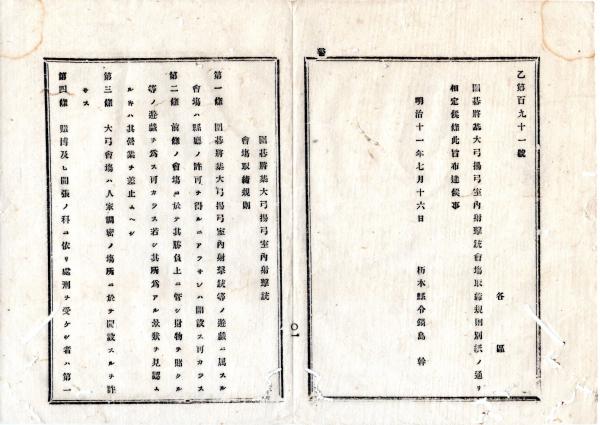 乙第百九十一號
各區
圍碁將碁大弓揚弓室內射擊銃會塲取締規則別紙ノ通リ
相定候條此旨布達候事
明治十一年七月十六日
栃木縣令鍋島幹
圍碁將碁大弓揚弓室內射擊銃
會塲取締規則
第一條 圍碁將碁大弓揚弓室內射擊銃等ノ遊戯ニ属スル
會塲ハ縣廳ノ許可ヲ得ルニアラサレハ開設ス可カラス
第二條 前條ノ會塲ニ於テ其勝負上ニ管シ財物ヲ賭クル
等ノ遊戯ヲ為ス可カラス若シ其所為アル景狀ヲ見認ム
ルキハ其營業ヲ差止ムヘシ
第三條 大弓會塲ハ人家稠密ノ塲所ニ於テ開設スルヲ許
サス
第四條 賭博及ヒ開張ノ科ニ依リ處刑ヲ受ケシ者ハ第一